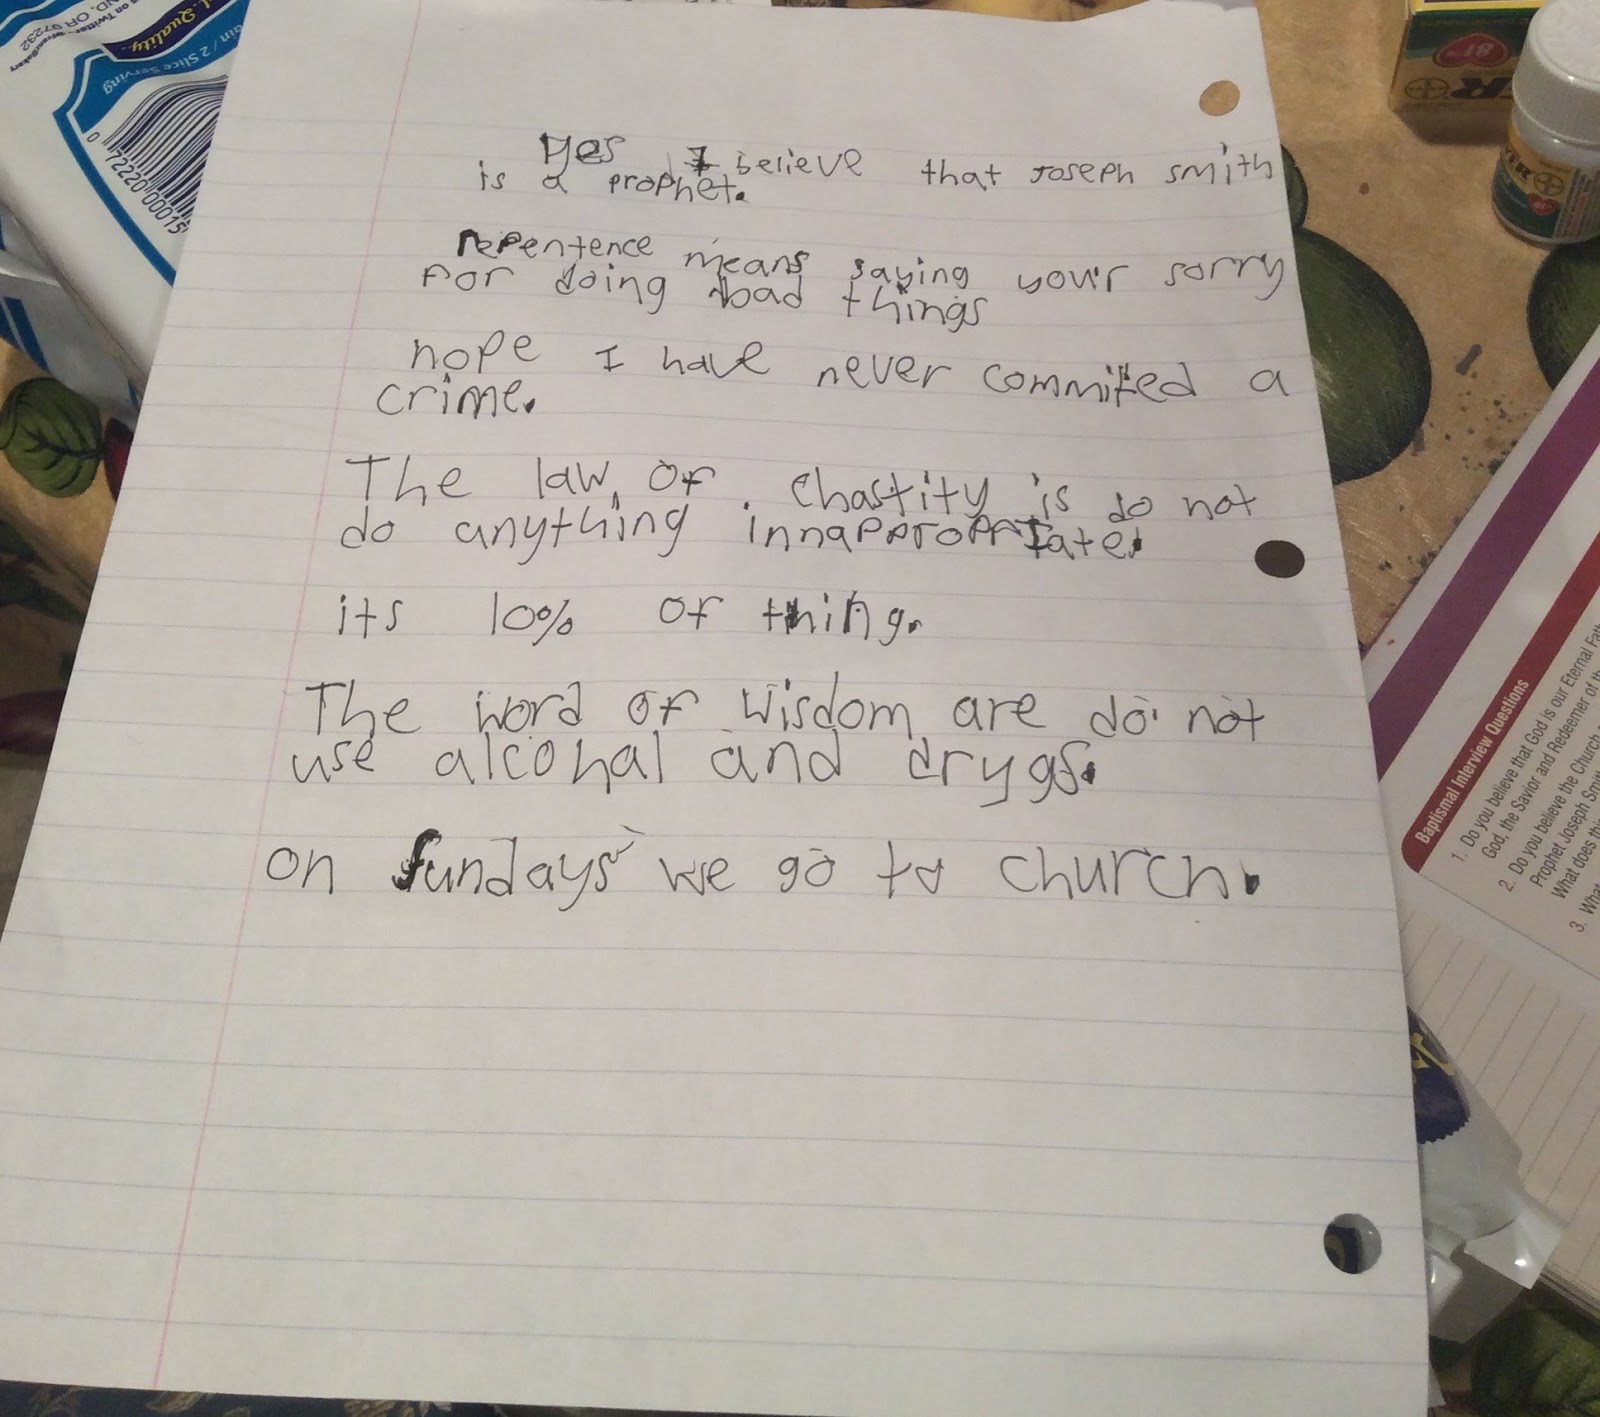 l. Quality.
on Twitter
ND, OR 97232
ain / 2 Slice Serving
0 72220 00015
81
ER
BAYER
Yes I believe that Joseph smith
is a prophet.
repentence means saying your sorry
For doing bad things
nope I have never commited a
crime.
The law of Chastity is do not
do anything innappropriate.
its 10% of thing.
The word of wisdom are do not
use alcohal and drygs.
on sundays we go to church.
Baptismal Interview Questions
1. Do you believe that God is our Eternal Fath
God, the Savior and Redeemer of th
2. Do you believe the Church
Prophet Joseph Smit
What does this
3. What